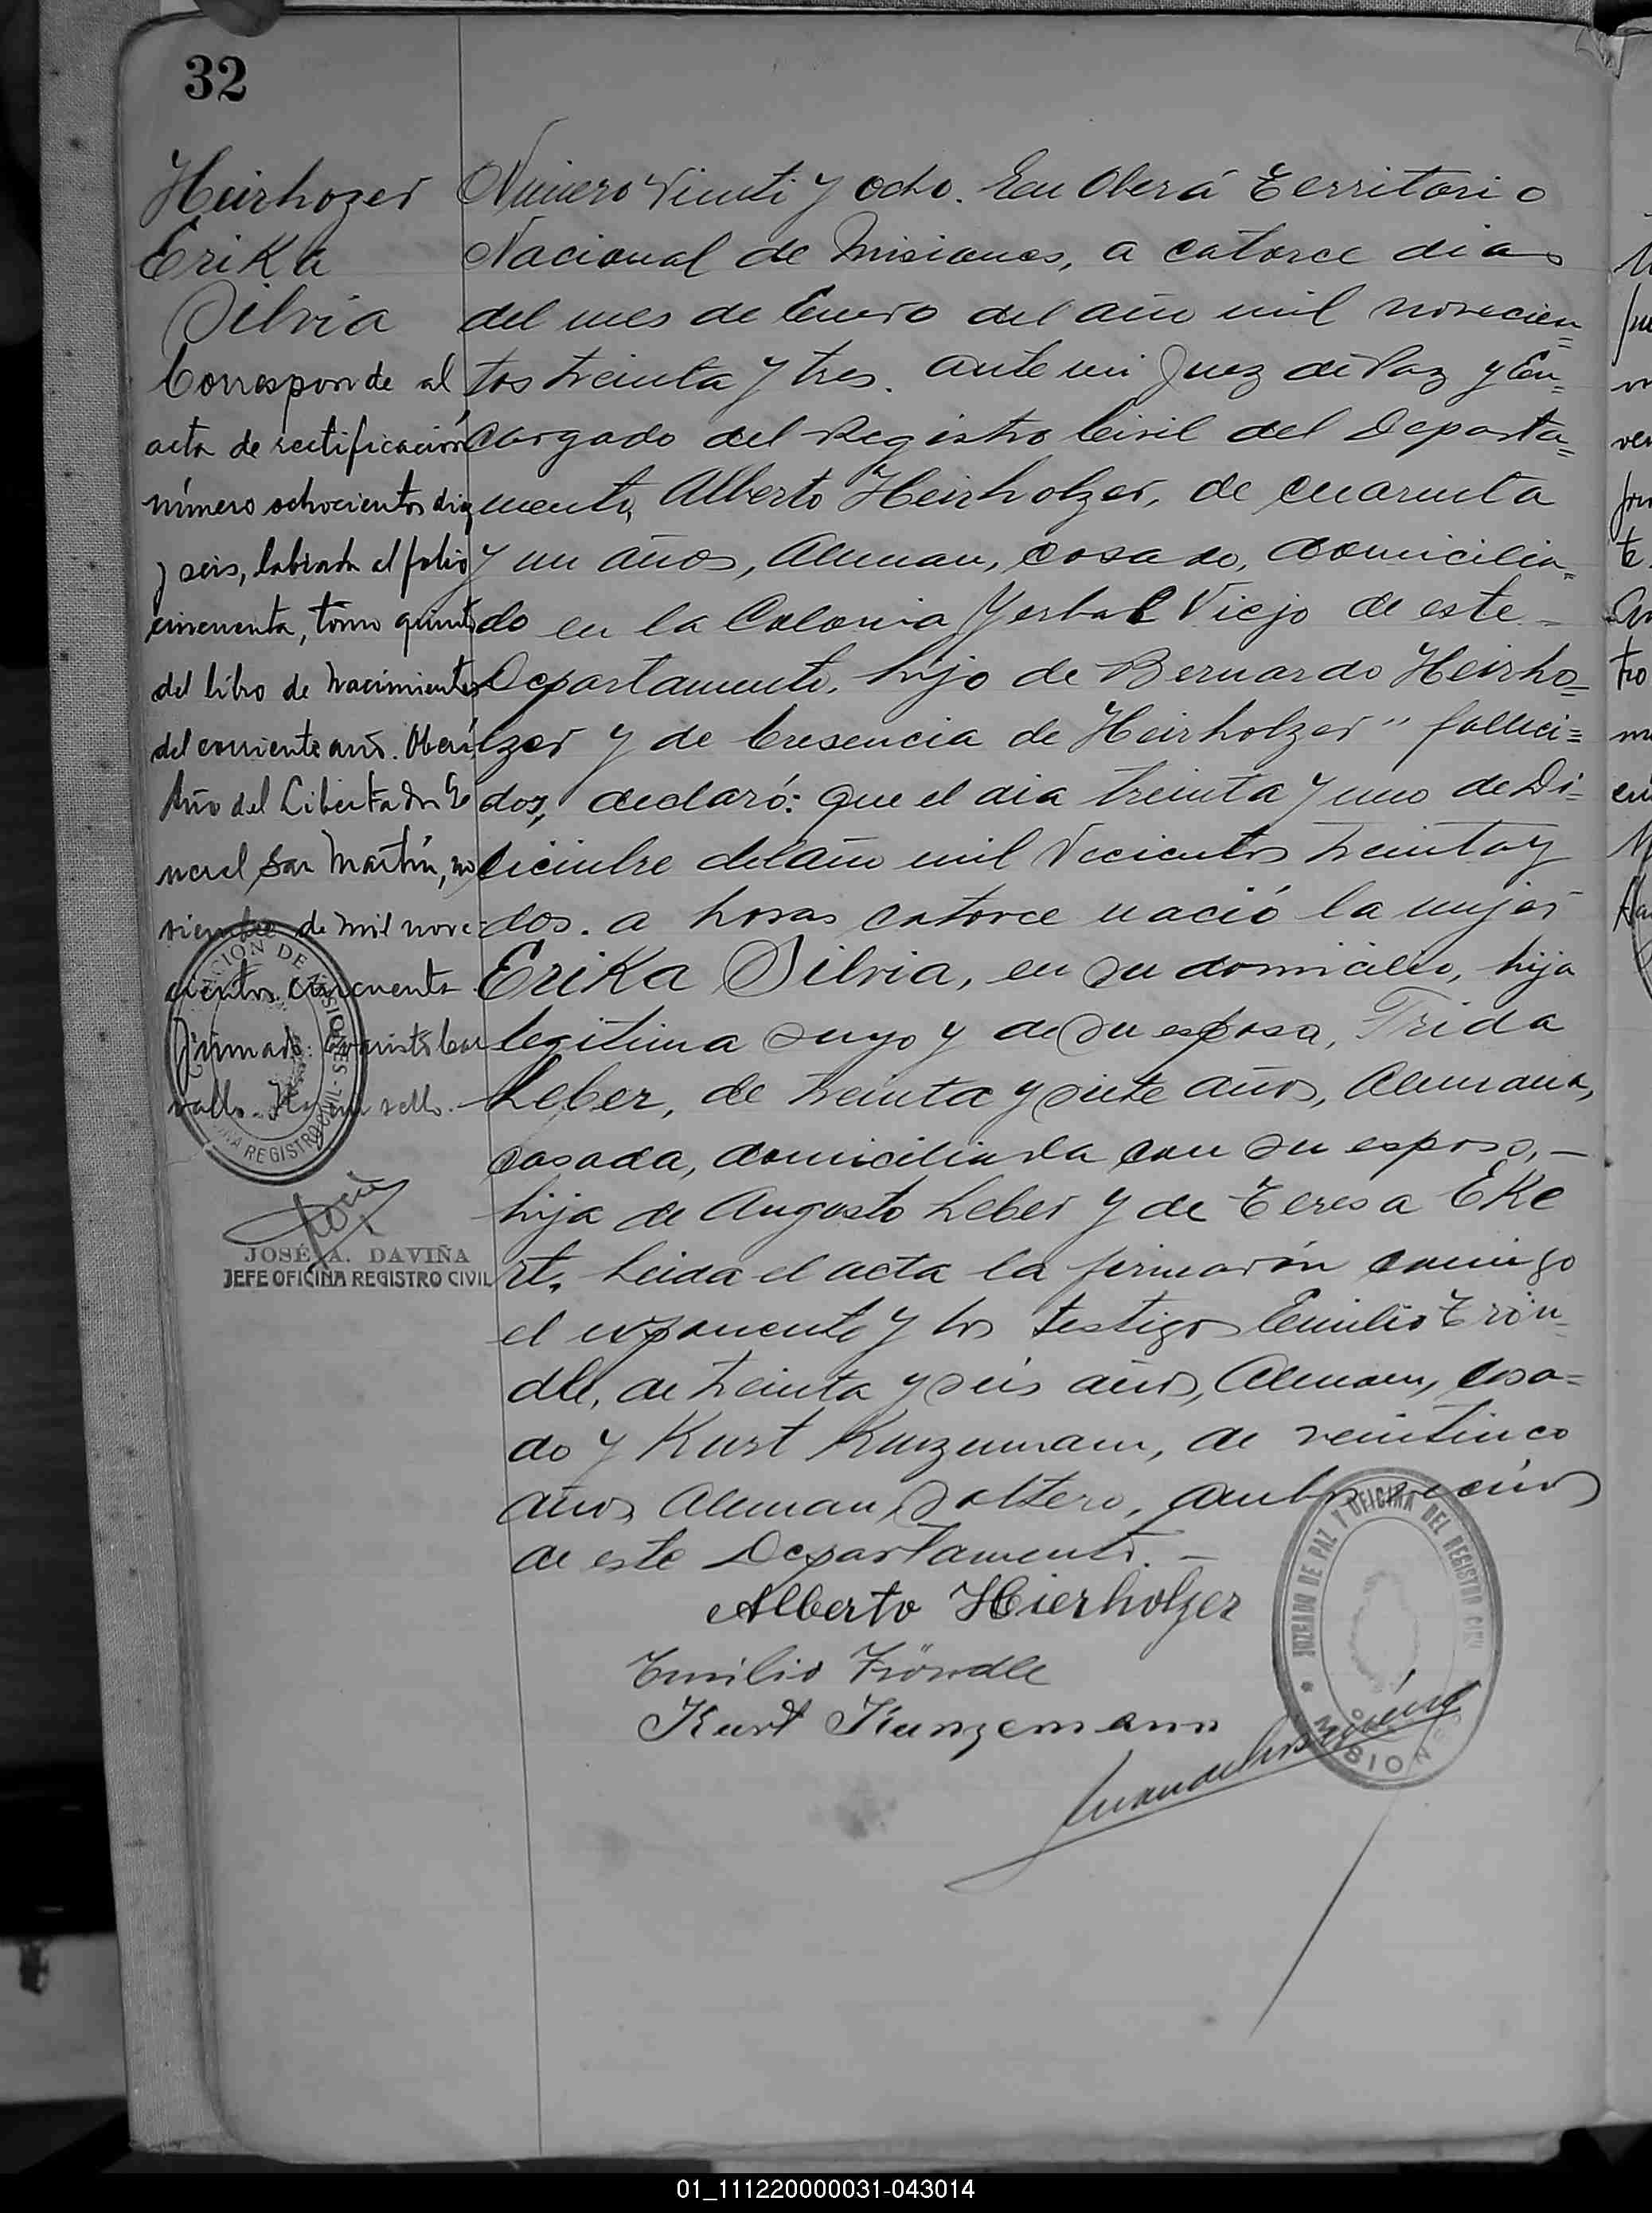 32
Heirhozer
Erika
Silvia
Corresponde al
acta de rectificación
número ochocientos diez
y seis, labrada al folio
cincuenta, tomo quinto
del libro de Nacimientos
del corriente año. Oberá,
Año del Libertador Ge
neral San Martín, no
viembre de mil nove
cientos cincuenta
Firmado: Evaristo Car
vallo. Hay un sello.
JOSÉ A. DAVIÑA
JEFE OFICINA REGISTRO CIVIL
Número Vienti y ocho. En Oberá Territorio
Nacional de Misiones, a catorce dias
del mes de Enero del año mil novecien=
tos treinta y tres. ante mi Juez de Paz y En=
cargado del Registro Civil del Departa=
mento, Alberto Heirholzer, de cuarenta
y un años, Aleman, casado, domicilia=
do en la Colonia Yerbal Viejo de este -
Departamento, hijo de Bernardo Heirho=
lzer y de Cresencia de Heirholzer" falleci=
dos, declaró: que el dia treinta y uno de Di=
ciembre del año mil Vecientos treinta y
dos. a horas catorce nació la mujer
Erika Silvia, en su domicilio, hija
legitima suyo y de su esposa, Frida
Leber, de treinta y siete años, Alemana,
casada, domiciliada con su esposo, -
hija de Augusto Leber y de Teresa Eke
rt. Leida el acta la firmarón comigo
el exponente y los testigos Emilio Trön=
dle, de treinta y seis años, Aleman, casa=
do y Kurt Kunzemann, de veintinco
años Aleman, Soltero, ambos vecinos
de este Departamento. -
Alberto Hierholzer
Emilio Tröndle
Kurt Kunzemann
JUZGADO DE PAZ Y OFICINA DEL REGISTRO CIVIL
MISIONES
01_111220000031-043014